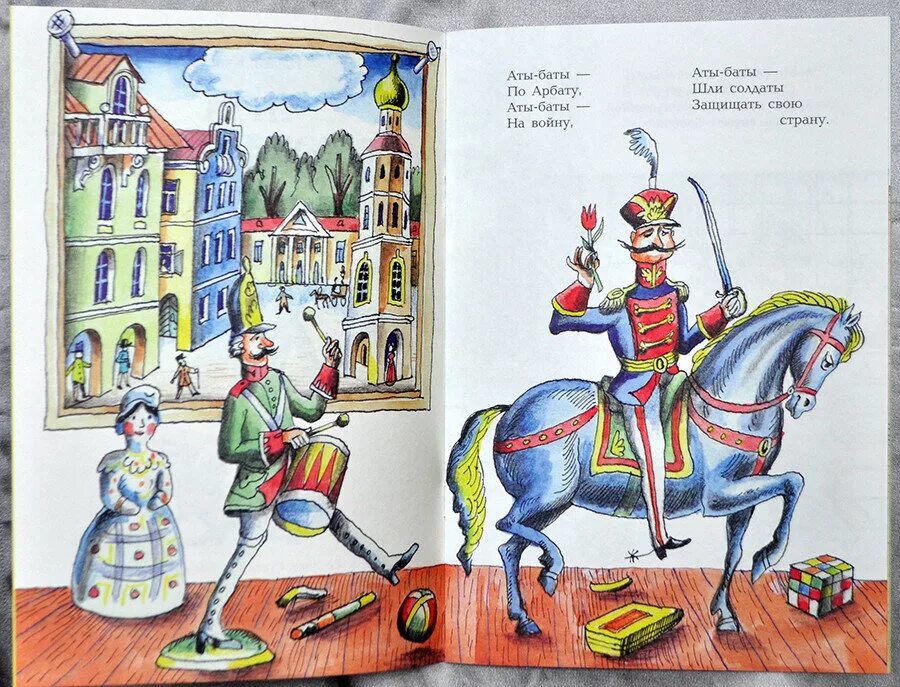 Аты-баты —
По Арбату,
Аты-баты —
На войну,
Аты-баты —
Шли солдаты
Защищать свою
страну.